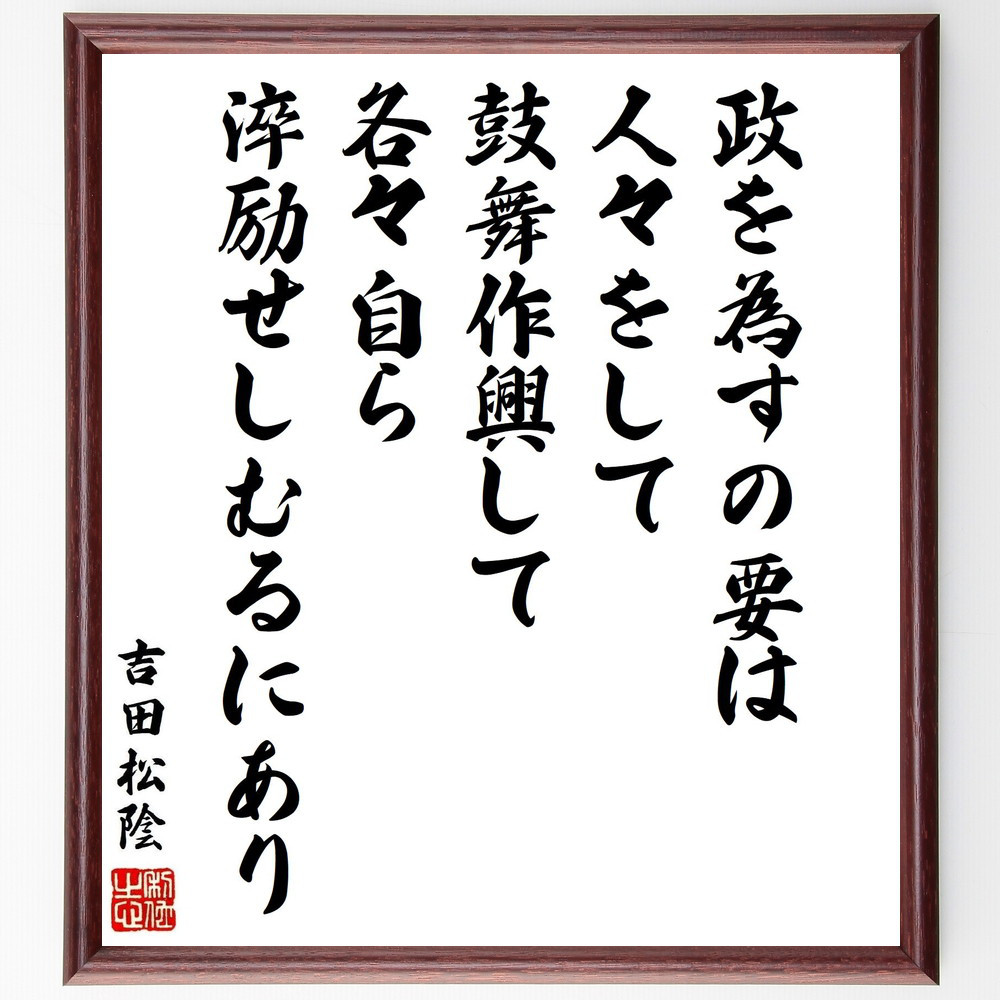 政を為すの要は
人々をして
鼓舞作興して
各々自ら
淬励せしむるにあり
吉田松陰